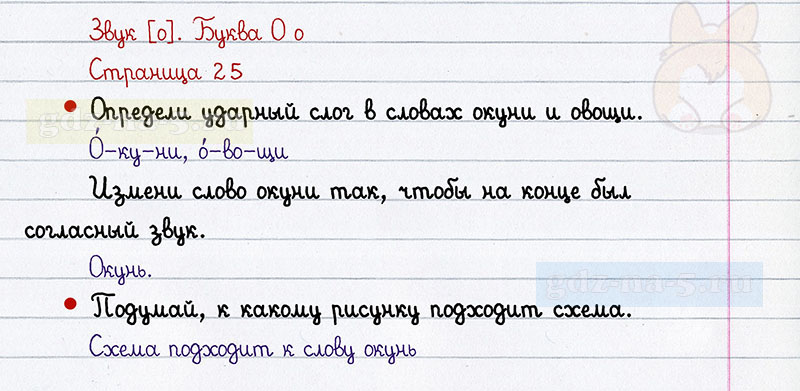 Звук [о]. Буква О о
Страница 25
• Определи ударный слог в словах окуни и овощи.
О́-ку-ни, о́-во-щи
Измени слово окуни так, чтобы на конце был
согласный звук.
Окунь.
• Подумай, к какому рисунку подходит схема.
Схема подходит к слову окунь
gdz-na-5.ru
gdz-na-5.ru